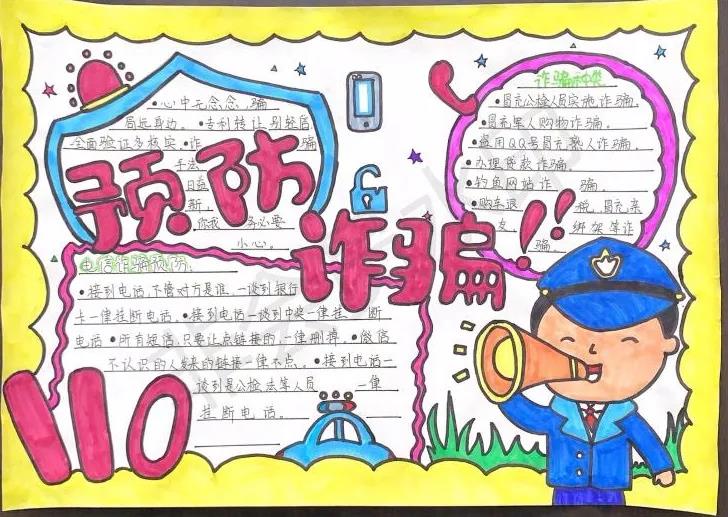 •心中无念念,骗
局远身边。•专利转让别轻信
全面验证多核实•诈 骗
手法
日益
新,
你我 务必要
小心。
预防
诈骗!!
诈骗
•冒充公检人员实施诈骗.
•冒充军人购物诈骗.
•盗用QQ号冒充熟人诈骗.
•办理贷款诈骗.
•钓鱼网站诈 骗.
•购车退 税.冒充亲
友 绑架等诈
骗.
电信诈骗预防:
•接到电话,不管对方是谁,一谈到银行
卡一律挂断电话.•接到电话一谈到中奖一律挂 断
电话•所有短信,只要让点链接的,一律删掉.•微信
不认识的人发来的链接一律不点.•接到电话一
谈到是公检法等人员 一律
挂断电话。
110